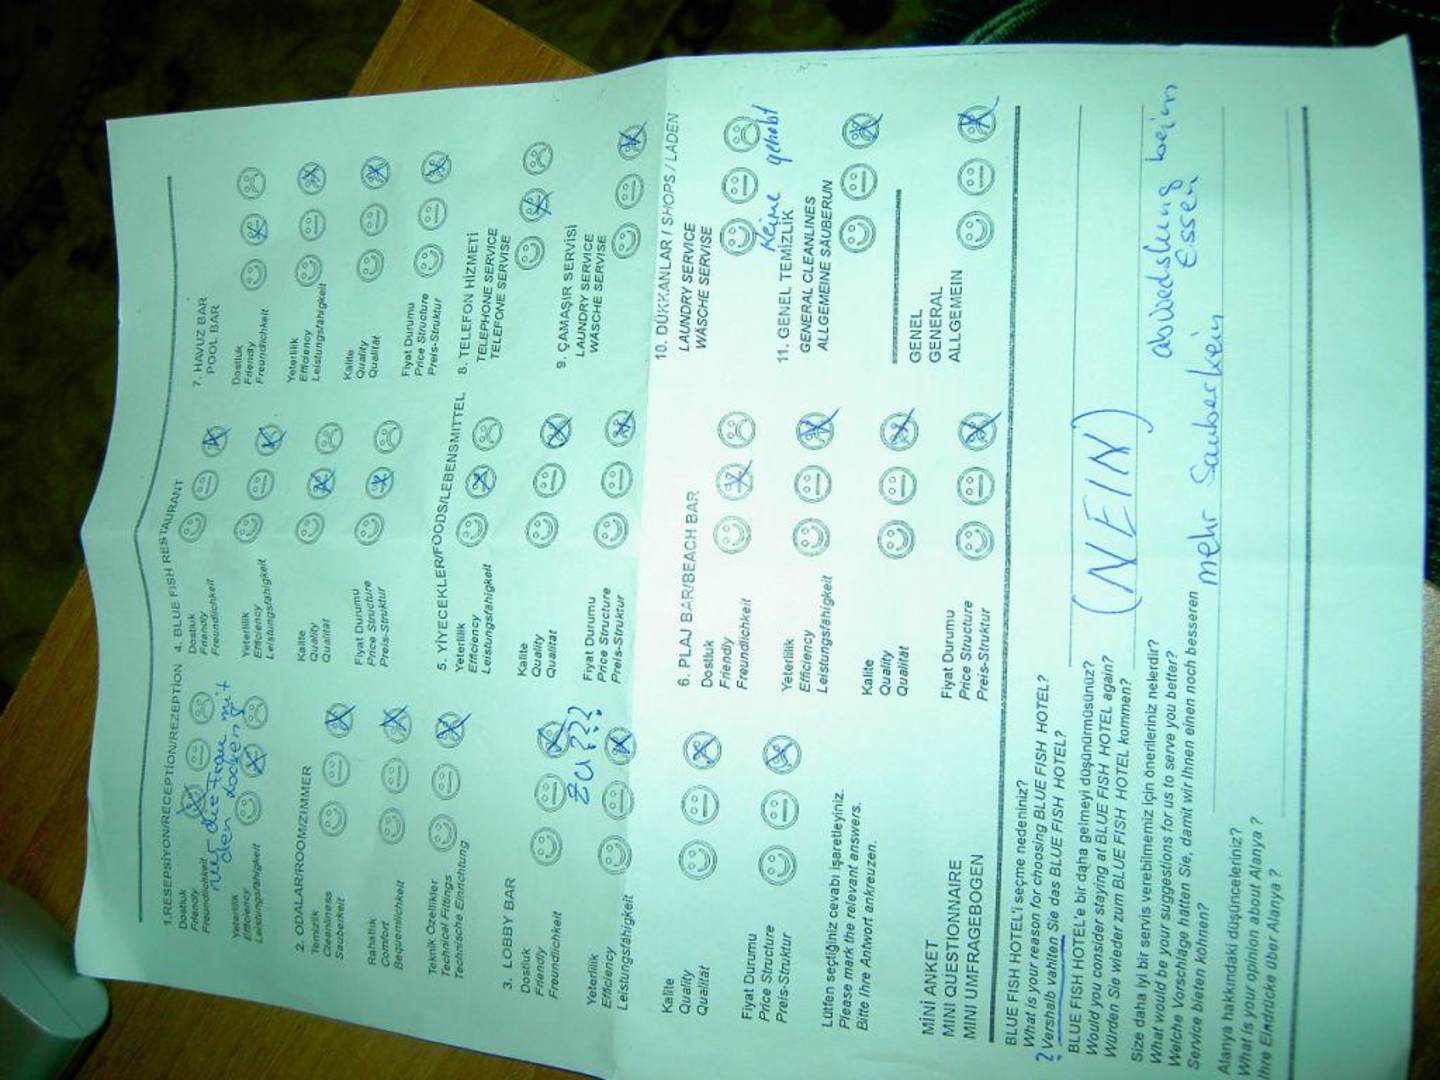 1.RESEPSİYON/RECEPTİON/REZEPTİON
Dostluk
Friendly
Freundlichkeit
nur die Frau mit
den Locken
Yeterlilik
Efficiency
Leistungsfähigkeit
2. ODALAR/ROOM/ZIMMER
Temizlik
Cleanliness
Sauberkeit
Rahatlık
Comfort
Bequemlichkeit
Teknik Özellikler
Technical Fittings
Technische Einrichtung
3. LOBBY BAR
Dostluk
Friendly
Freundlichkeit
zu???
Yeterlilik
Efficiency
Leistungsfähigkeit
Kalite
Quality
Qualität
Fiyat Durumu
Price Structure
Preis-Struktur
4. BLUE FISH RESTAURANT
Dostluk
Friendly
Freundlichkeit
Yeterlilik
Efficiency
Leistungsfähigkeit
Kalite
Quality
Qualität
Fiyat Durumu
Price Structure
Preis-Struktur
5. YİYECEKLER/FOODS/LEBENSMITTEL
Yeterlilik
Efficiency
Leistungsfähigkeit
Kalite
Quality
Qualität
Fiyat Durumu
Price Structure
Preis-Struktur
6. PLAJ BAR/BEACH BAR
Dostluk
Friendly
Freundlichkeit
Yeterlilik
Efficiency
Leistungsfähigkeit
Kalite
Quality
Qualität
Fiyat Durumu
Price Structure
Preis-Struktur
7. HAVUZ BAR
POOL BAR
Dostluk
Friendly
Freundlichkeit
Yeterlilik
Efficiency
Leistungsfähigkeit
Kalite
Quality
Qualität
Fiyat Durumu
Price Structure
Preis-Struktur
8. TELEFON HİZMETİ
TELEPHONE SERVICE
TELEFONE SERVISE
9. ÇAMAŞIR SERVİSİ
LAUNDRY SERVICE
WÄSCHE SERVISE
10. DÜKKANLAR / SHOPS / LADEN
LAUNDRY SERVICE
WÄSCHE SERVISE
Keine gehabt
11. GENEL TEMİZLİK
GENERAL CLEANLINES
ALLGEMEINE SAUBERUN
GENEL
GENERAL
ALLGEMEIN
Lütfen seçtiğiniz cevabı işaretleyiniz.
Please mark the relevant answers.
Bitte Ihre Antwort ankreuzen.
MİNİ ANKET
MINI QUESTIONNAIRE
MINI UMFRAGEBOGEN
BLUE FISH HOTEL'i seçme nedeniniz?
What is your reason for choosing BLUE FISH HOTEL?
? Vershalb vahlten Sie das BLUE FISH HOTEL?
BLUE FISH HOTEL'e bir daha gelmeyi düşünürmüsünüz?
Would you consider staying at BLUE FISH HOTEL again?
Würden Sie wieder zum BLUE FISH HOTEL kommen?
(NEIN)
Size daha iyi bir servis verebilmemiz için önerileriniz nelerdir?
What would be your suggestions for us to serve you better?
Welche Vorschläge hätten Sie, damit wir Ihnen einen noch besseren
Service bieten köhnen?
mehr Sauberkein abwedslung beim
Essen
Alanya hakkındaki düşünceleriniz?
What is your opinion about Alanya ?
Ihre Eindrücke über Alanya ?